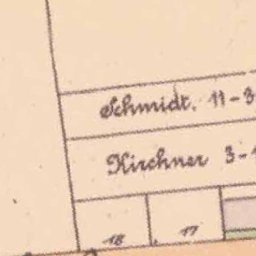 Schmidt. 11-3
Kirchner 3-1
18 17